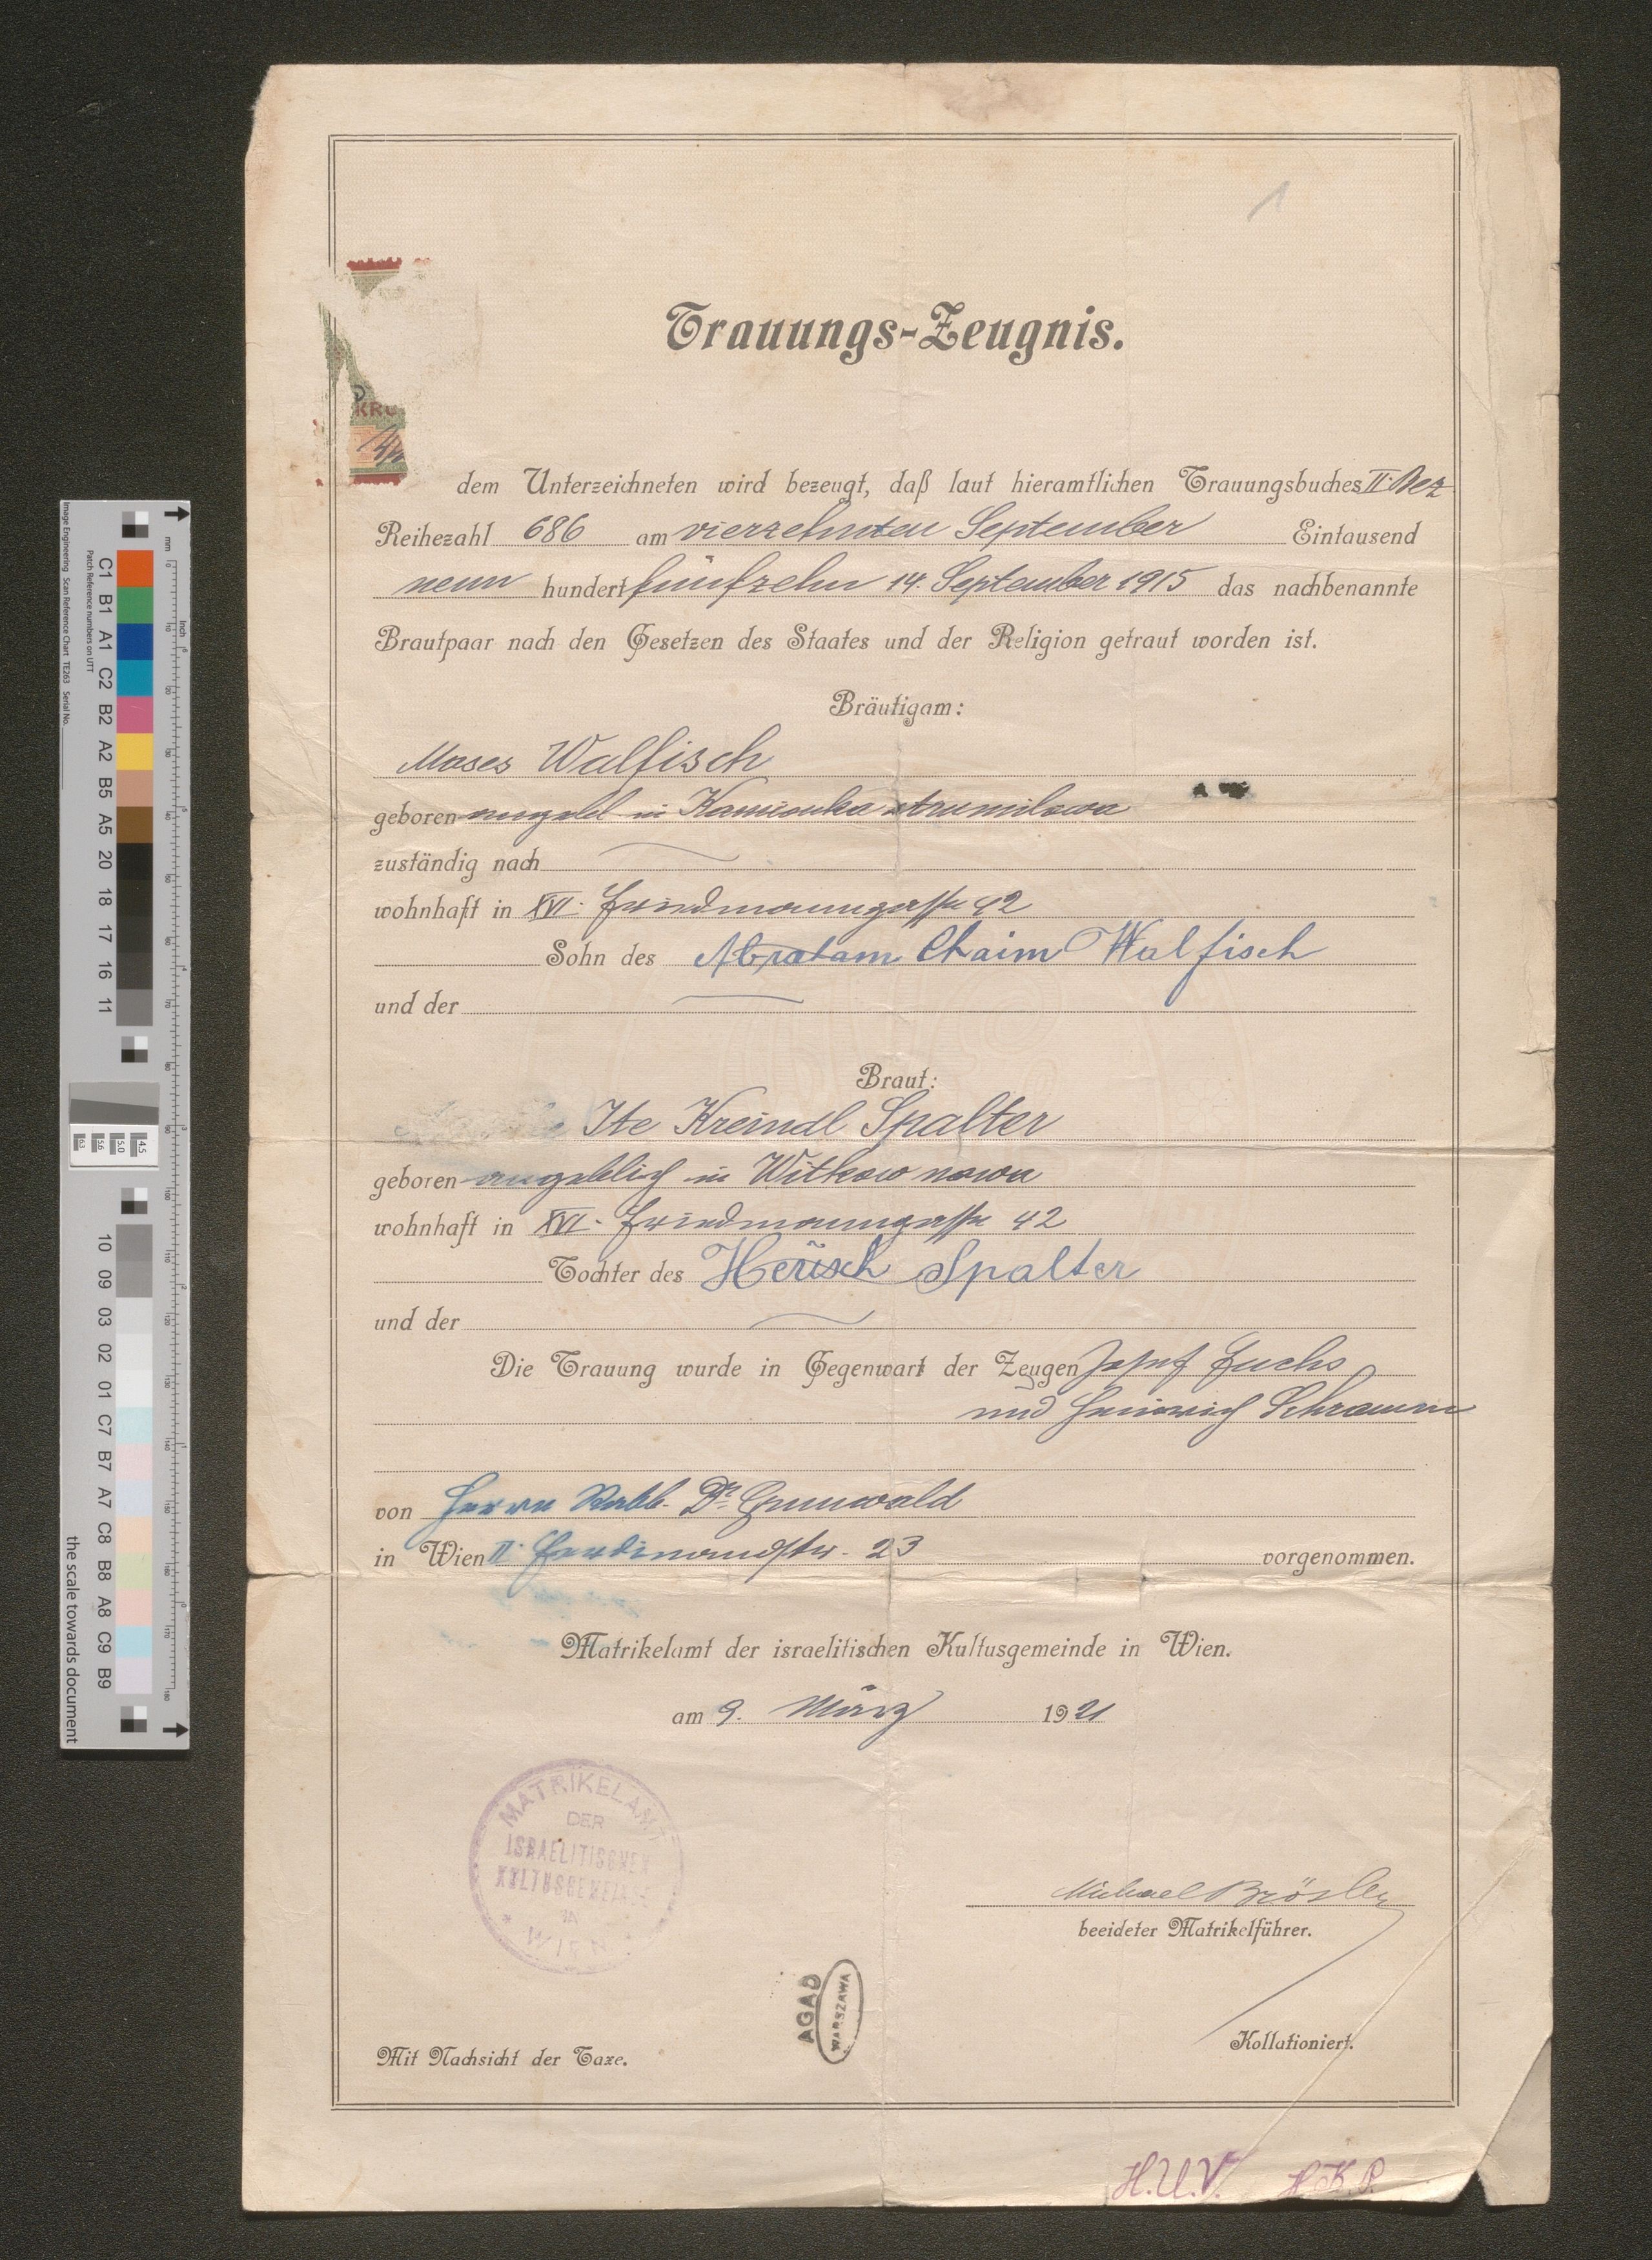 1
Trauungs-Zeugnis.
KRO
dem Unterzeichneten wird bezeugt, daß laut hieramtlichen Trauungsbuches II. Bez
Reihezahl 686 am vierzehnten September Eintausend
neun hundert fünfzehn 14. September 1915 das nachbenannte
Brautpaar nach den Gesetzen des Staates und der Religion getraut worden ist.
Bräutigam:
Moses Walfisch
geboren angebl. in Kamionka strumilowa
zuständig nach
wohnhaft in XVI. Friedmanngasse 42
Sohn des Abraham Chaim Walfisch
und der
Braut:
Ite Kreindl Spalter
geboren angeblich in Witkow nowa
wohnhaft in XVI. Friedmanngasse 42
Tochter des Hersch Spalter
und der
Die Trauung wurde in Gegenwart der Zeugen Josef Fuchs
und Heinrich Schramm
von Herrn Rabb. Dr. Grunwald
in Wien II. Ferdinandstr. 23 vorgenommen.
Matrikelamt der israelitischen Kultusgemeinde in Wien.
am 9. März 1921
MATRIKELAMT
DER
ISRAELITISCHEN
KULTUSGEMEINDE
IN
* WIEN *
Michael
beeideter Matrikelführer.
AGAD
WARSZAWA
Kollationiert.
Mit Nachsicht der Taxe.
H.U.V. H.K.P.
Image Engineering Scan Reference Chart TE263 Serial No.
Patch Reference numbers on UTT
C1 B1 A1 C2 B2 A2 B5 A5 20 18 17 16 11
10 09 03 02 01 C7 B7 A7 C8 B8 A8 C9 B9
the scale towards document
mm
inch
4.5
5.0
5.6
6.3